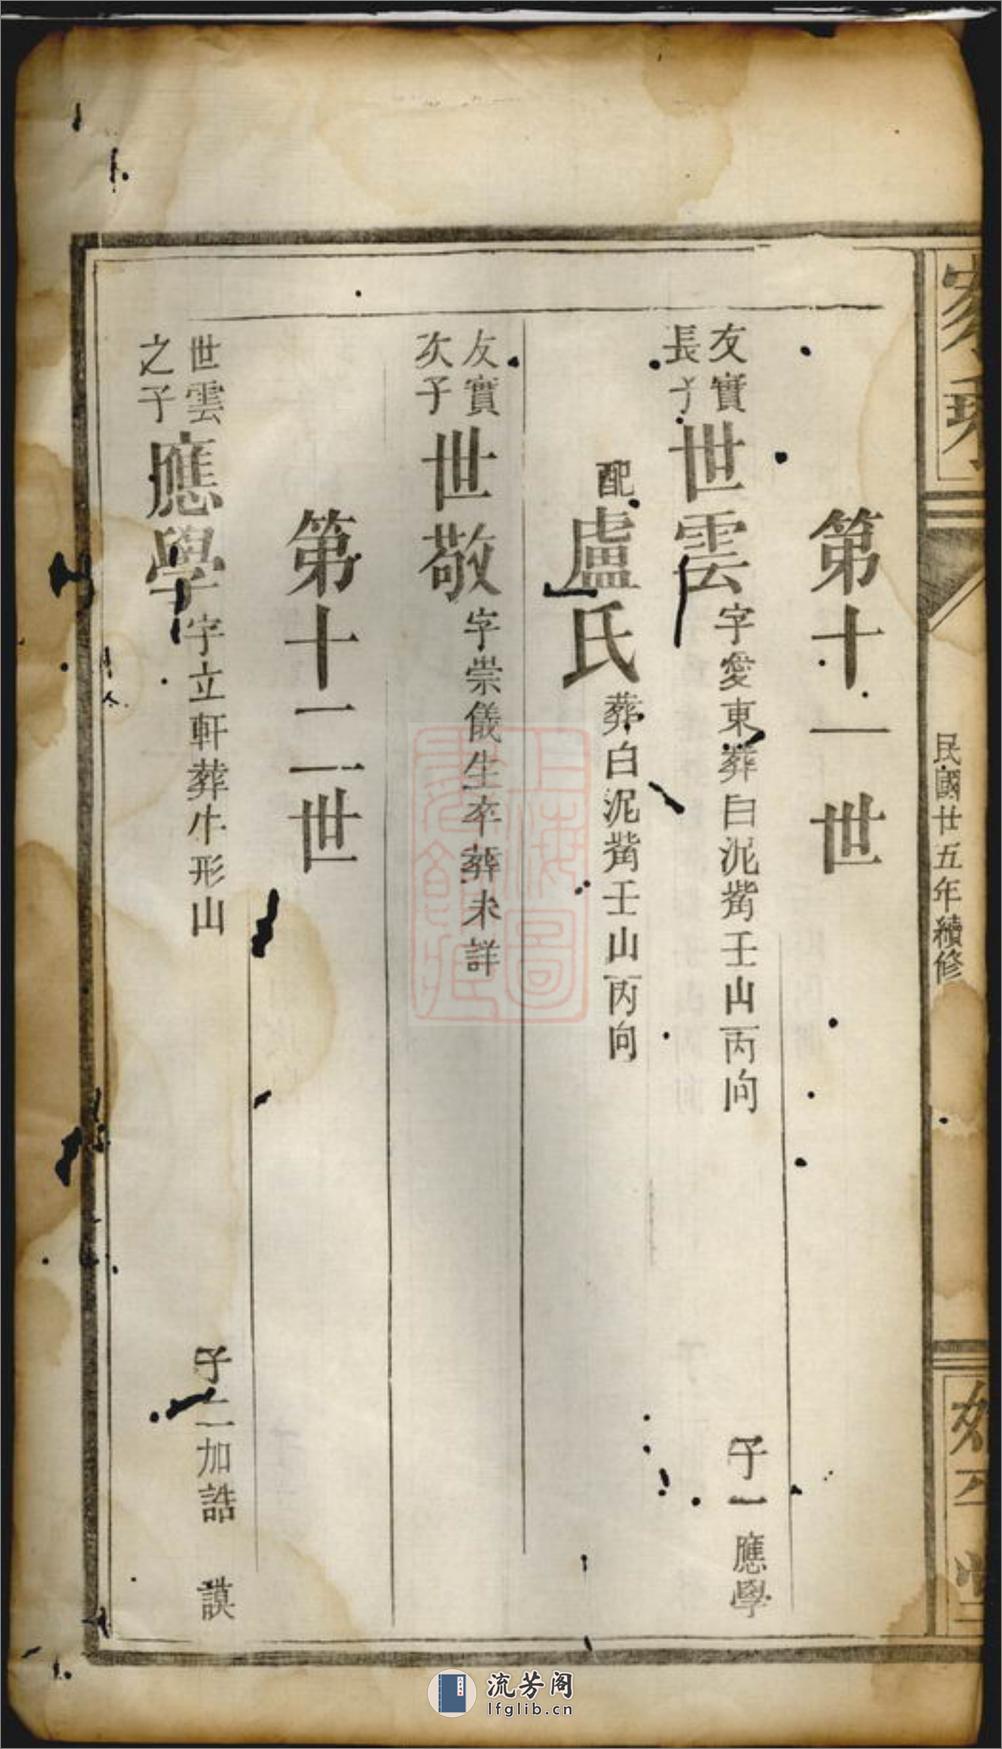 家乘
民國廿五年續修
第十一世
友實長子 世雲 字愛東葬白泥嘴壬山丙向 子一 應學
配盧氏 葬白泥嘴壬山丙向
友實次子 世敬 字崇儀生卒葬未詳
第十二世
世雲之子 應學 字立軒葬牛形山 子二 加誥 謨
上海圖書館藏
流芳阁
lfglib.cn